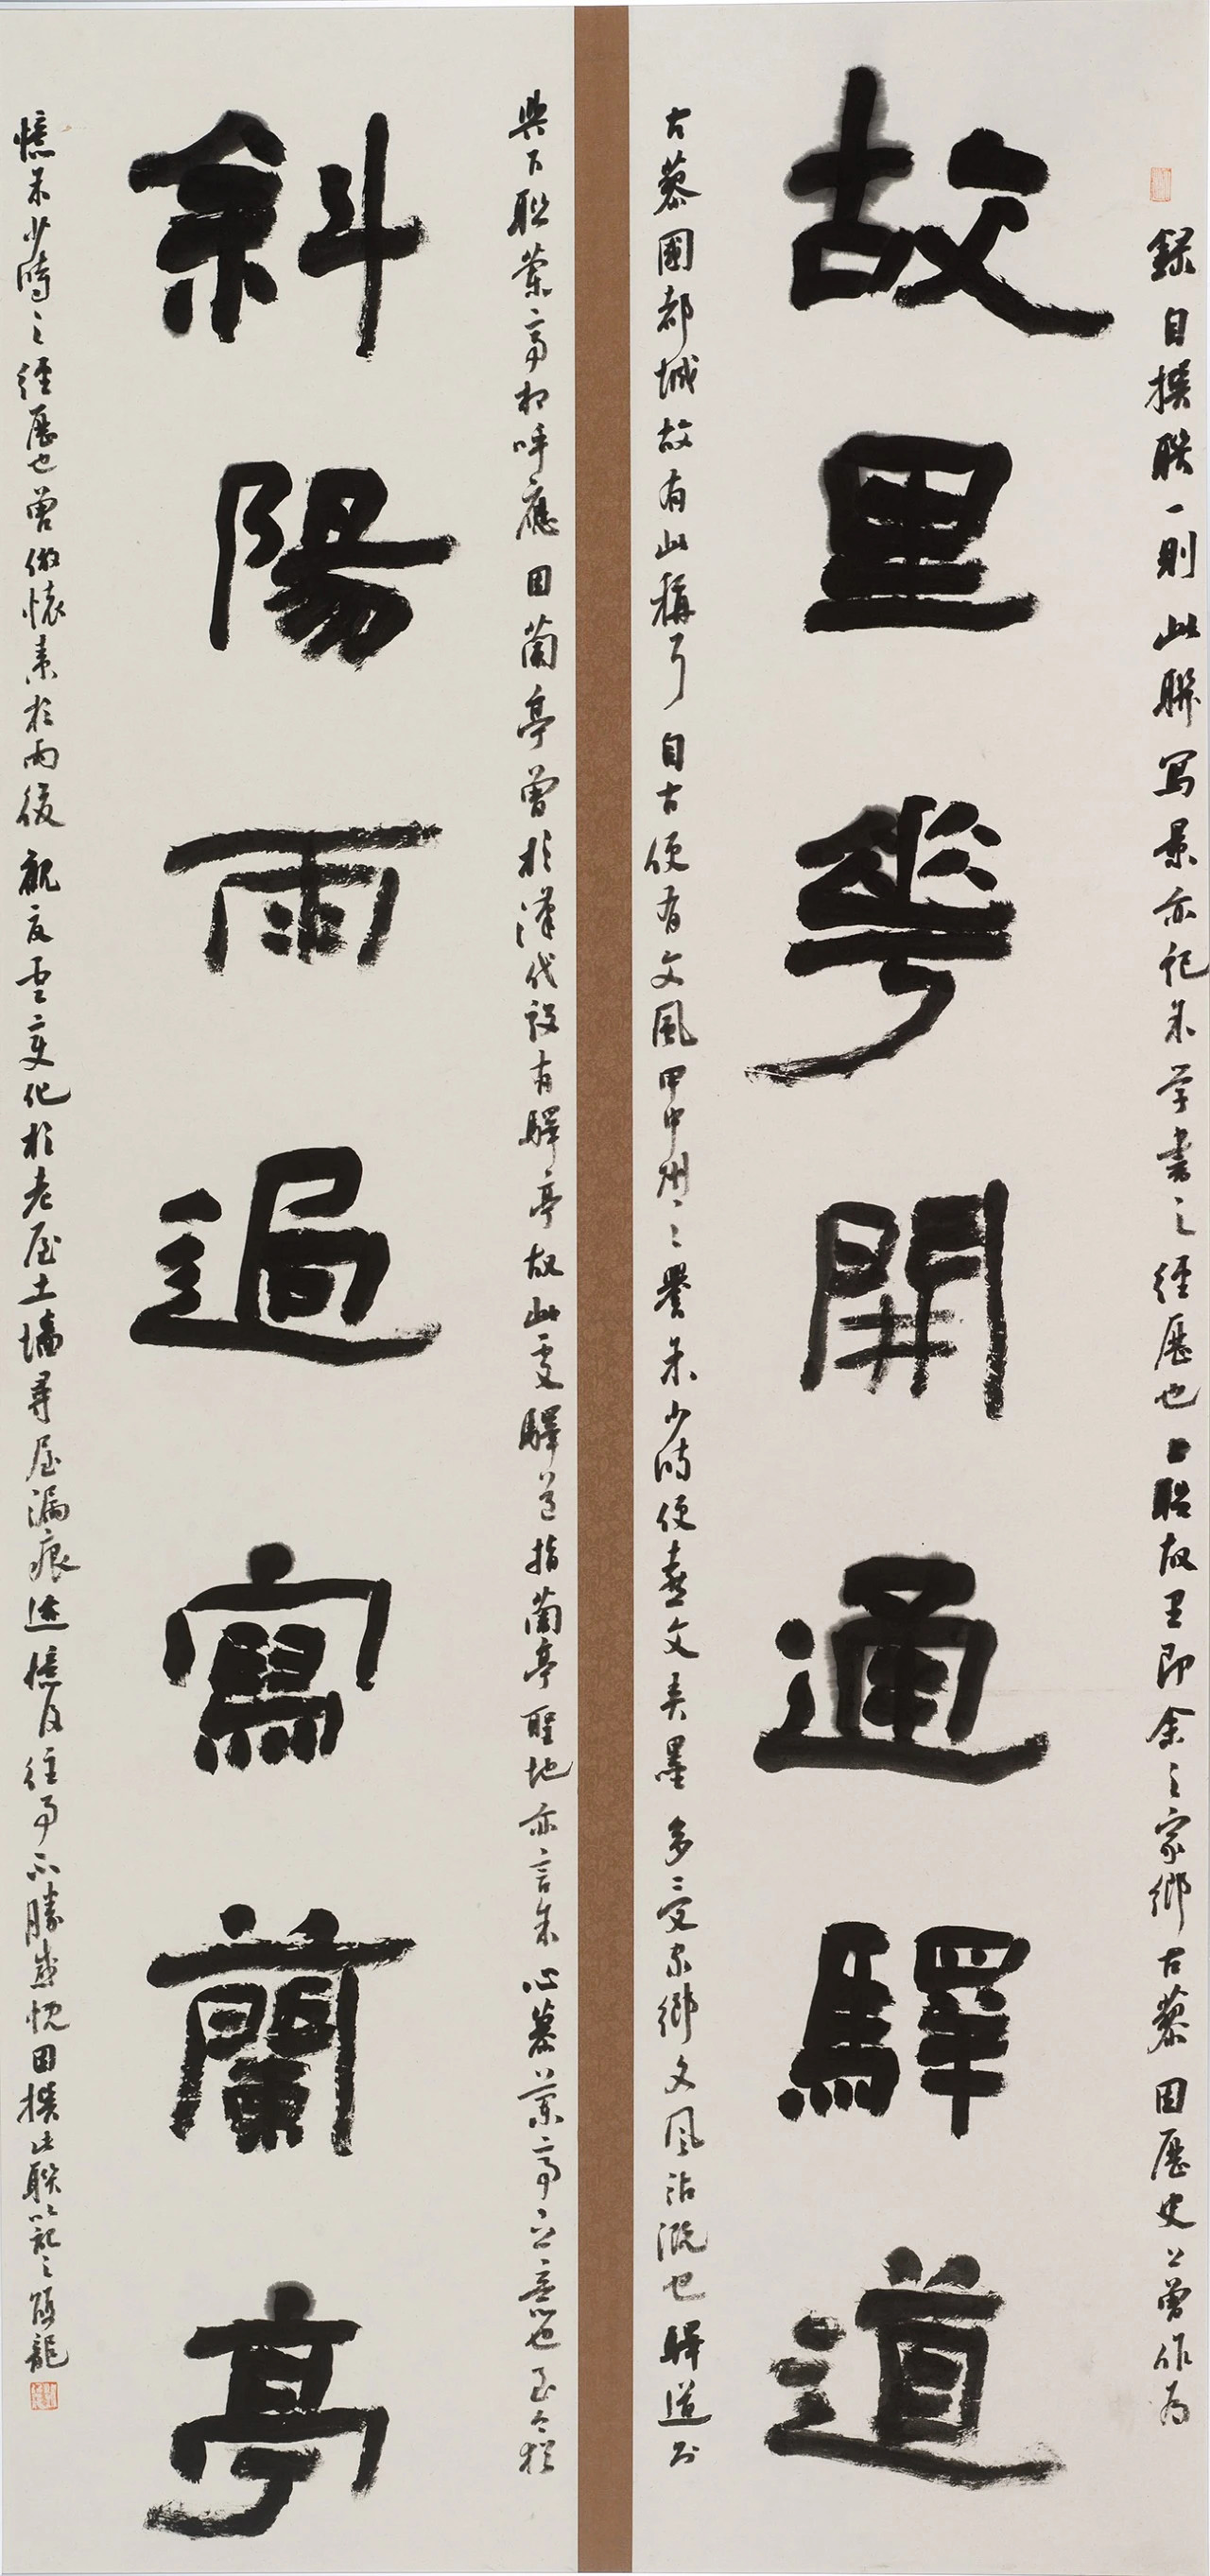 故里花開通驛道
斜陽雨過寫蘭亭
錄自撰聯一則此聯寫景亦記余學書之經歷也上聯故里即余之家鄉古蔡因歷史上曾作為
古蔡國都城故有此稱了自古便有文風甲中州之譽余少時便喜文弄墨多受家鄉文風沾溉也驛道則
與下聯蘭亭相呼應因蘭亭曾於漢代設有驛亭故此處驛道指蘭亭聖地亦言余心慕蘭亭之意也至今猶
憶余少時之經歷也曾倣懷素於雨後觀夏雲變化於老屋土墻尋屋漏痕迹憶及往事不勝感慨因撰此聯以記之 龍